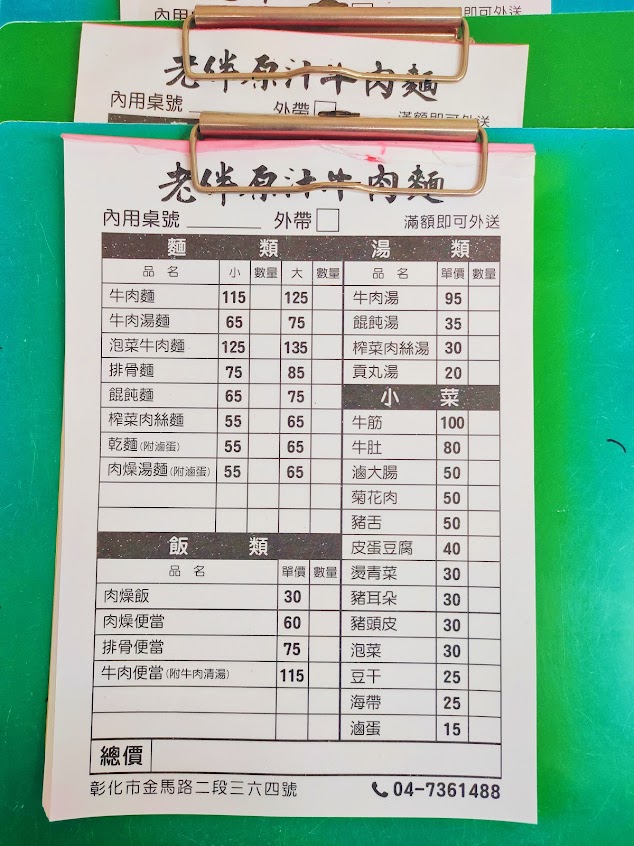 內用桌號 即可外送
老伴原汁牛肉麵
內用桌號 外帶 滿額即可外送
老伴原汁牛肉麵
內用桌號 外帶 滿額即可外送
麵類
品名 小 數量 大 數量
牛肉麵 115 125
牛肉湯麵 65 75
泡菜牛肉麵 125 135
排骨麵 75 85
餛飩麵 65 75
榨菜肉絲麵 55 65
乾麵(附滷蛋) 55 65
肉燥湯麵(附滷蛋) 55 65
飯類
品名 單價 數量
肉燥飯 30
肉燥便當 60
排骨便當 75
牛肉便當(附牛肉清湯) 115
湯類
品名 單價 數量
牛肉湯 95
餛飩湯 35
榨菜肉絲湯 30
貢丸湯 20
小菜
牛筋 100
牛肚 80
滷大腸 50
菊花肉 50
豬舌 50
皮蛋豆腐 40
燙青菜 30
豬耳朵 30
豬頭皮 30
泡菜 30
豆干 25
海帶 25
滷蛋 15
總價
彰化市金馬路二段三六四號 04-7361488